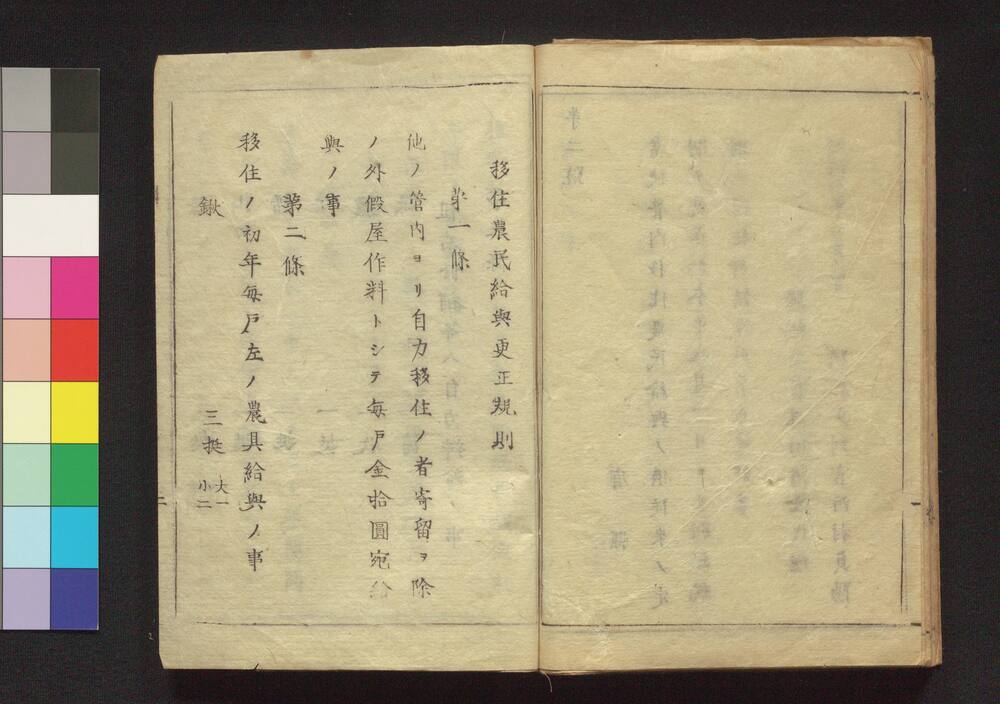 移住農民給與更正規則
第一條
他ノ管内ヨリ自力移住ノ者寄留ヲ除
ノ外假屋作料トシテ毎戸金拾圓宛給
與ノ事
第二條
移住ノ初年毎戸左ノ農具給與ノ事
鍬 三挺 大一 小二